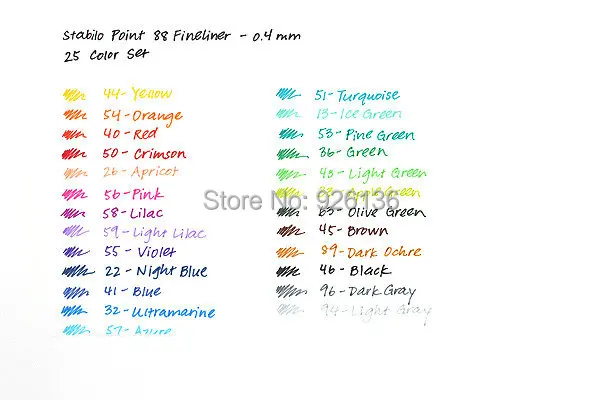 Stabilo Point 88 Fineliner - 0.4 mm
25 Color Set
44 - Yellow
54 - Orange
40 - Red
50 - Crimson
26 - Apricot
56 - Pink
58 - Lilac
59 - Light Lilac
55 - Violet
22 - Night Blue
41 - Blue
32 - Ultramarine
57 - Azure
51 - Turquoise
13 - Ice Green
53 - Pine Green
36 - Green
43 - Light Green
33 - Apple Green
63 - Olive Green
45 - Brown
89 - Dark Ochre
46 - Black
96 - Dark Gray
94 - Light Gray
Store No: 926136